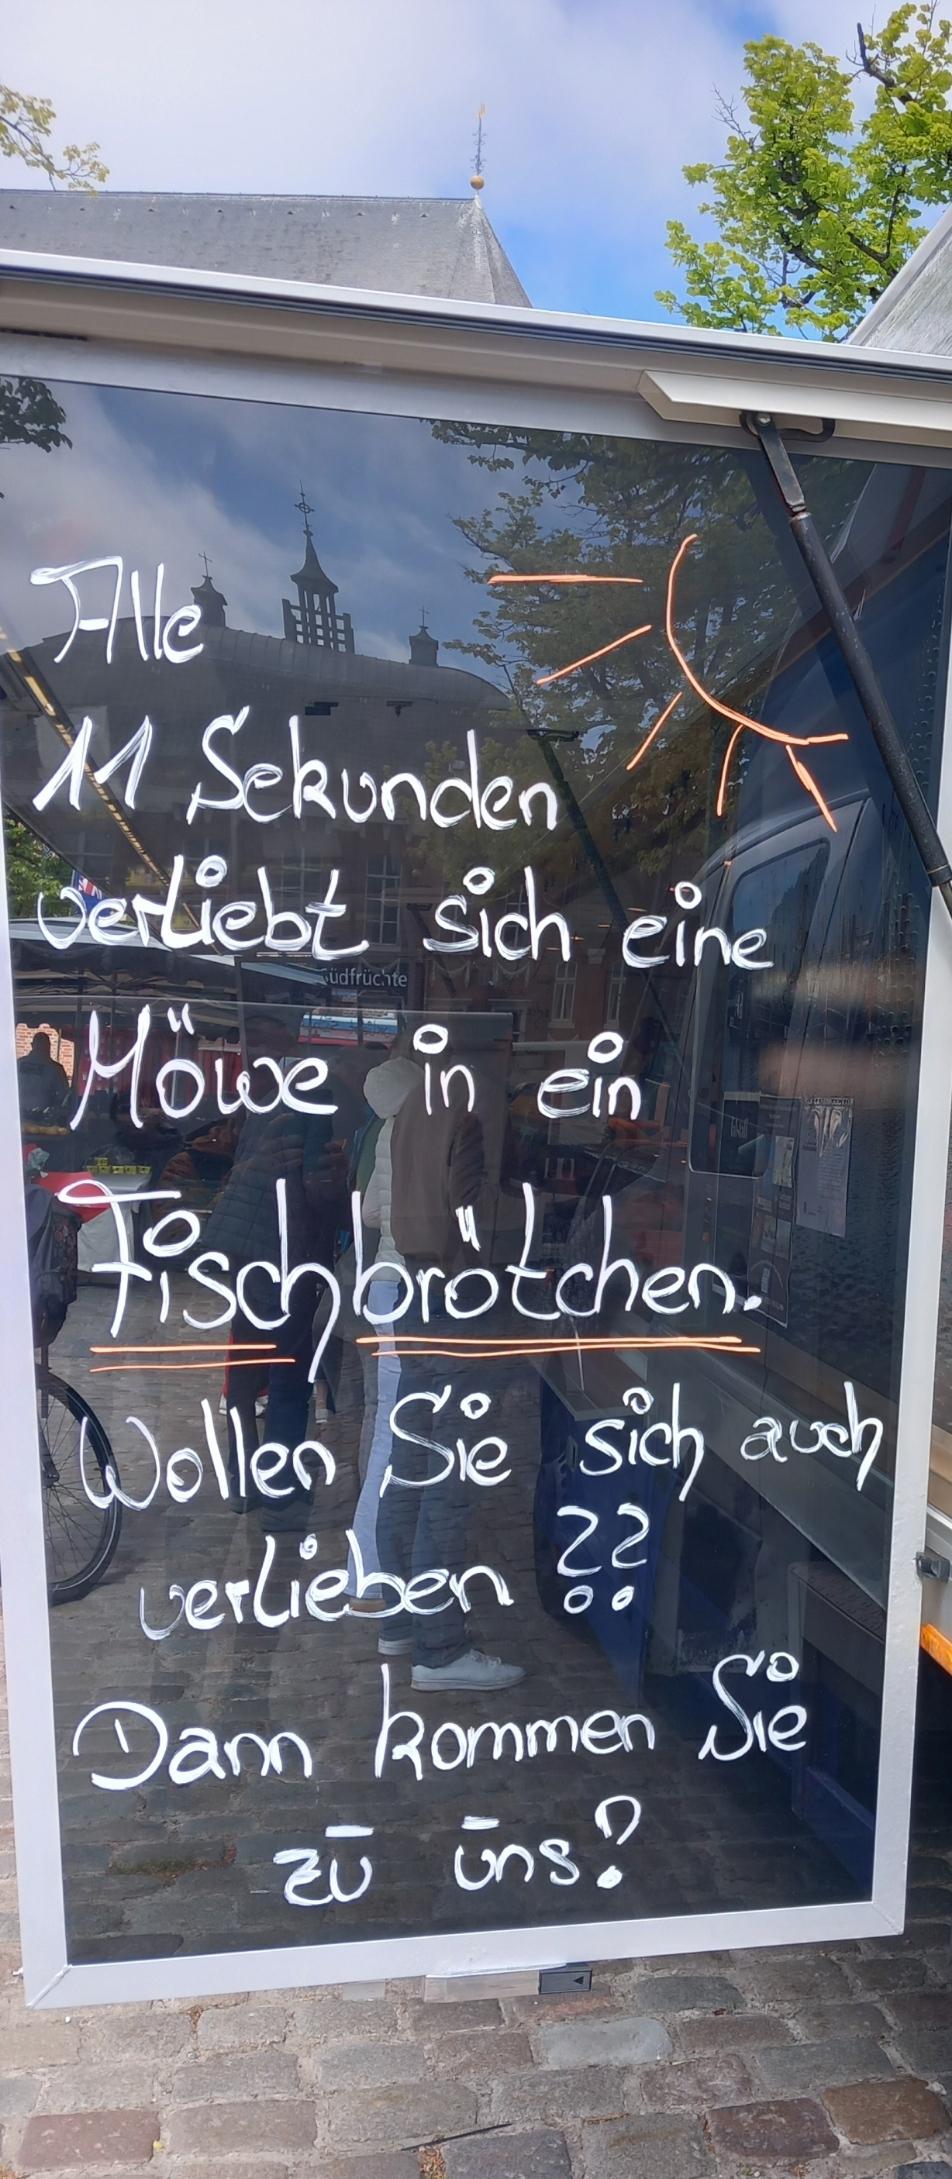 Alle
11 Sekunden
verliebt sich eine
südfrüchte
Möwe in ein
Fischbrötchen.
Wollen Sie sich auch
verlieben ??
Dann kommen Sie
zu uns?